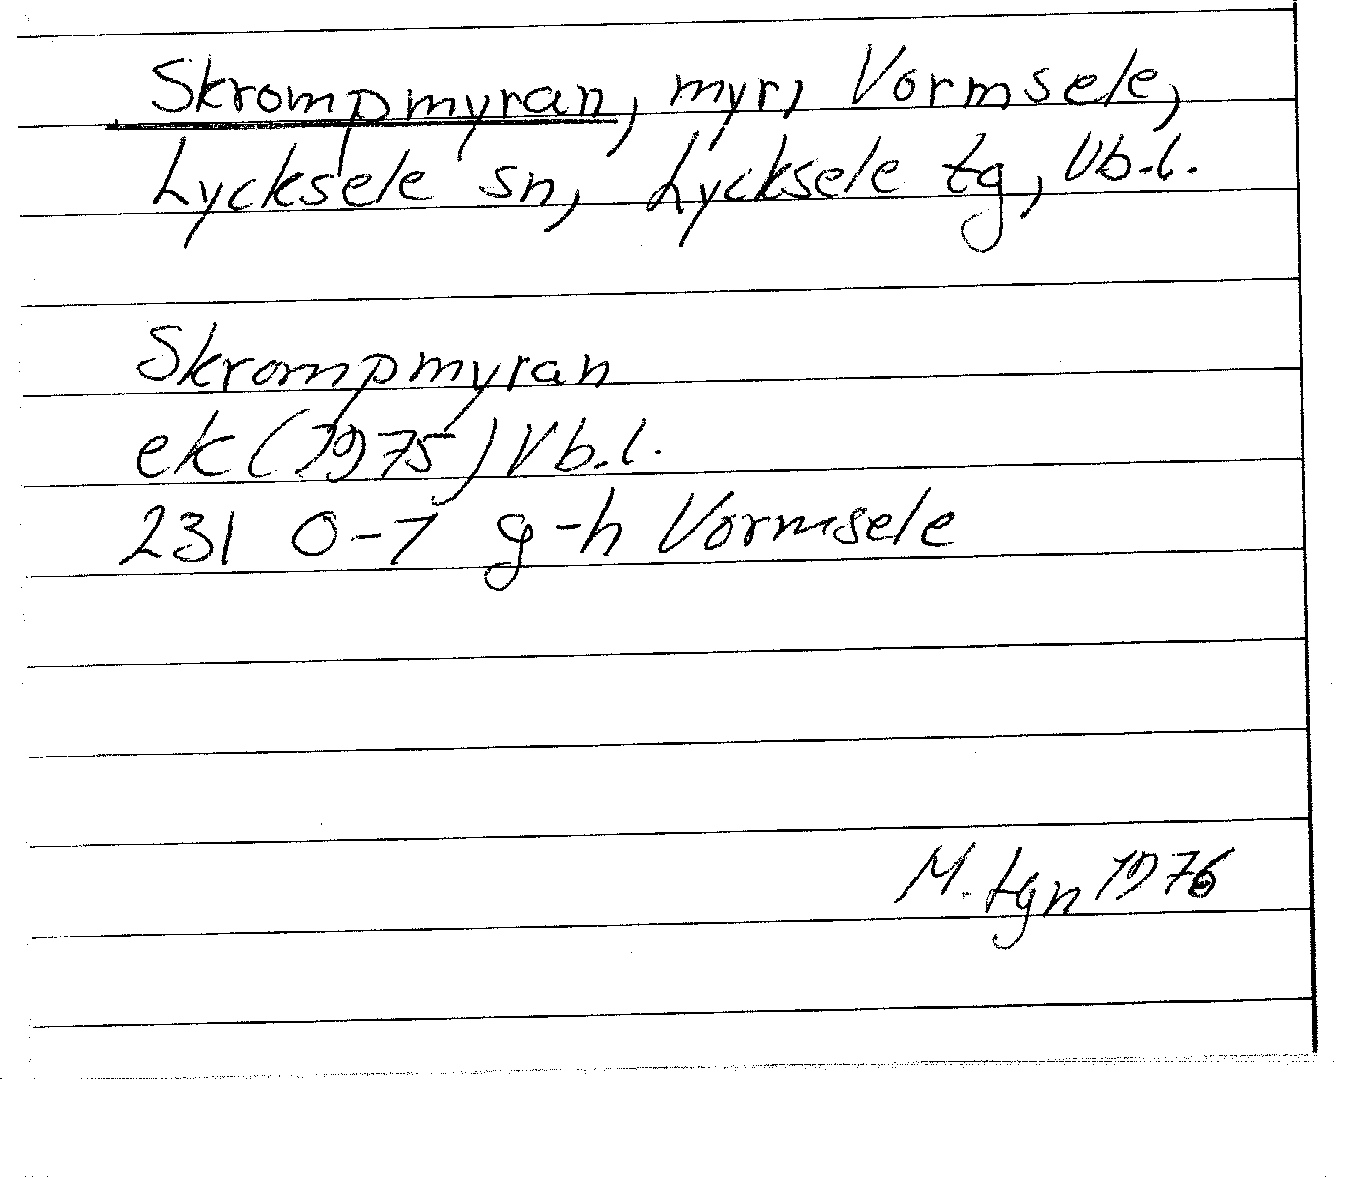 Skrompmyran, myr, Vormsele,
Lycksele sn, Lycksele tg, Vb.l.
Skrompmyran
ek (1975) Vb.l.
231 0-1 g-h Vormsele
M. Lgn 1976